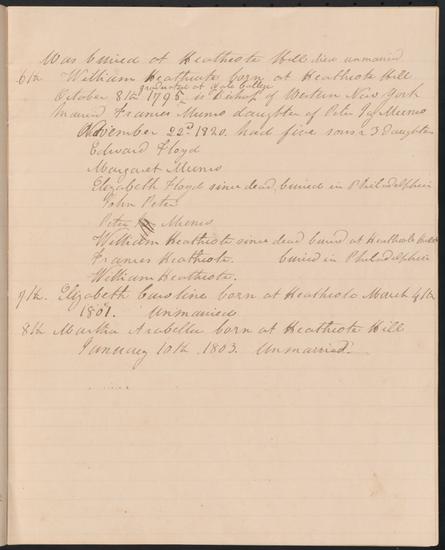 Was buried at Heathcote Hill died unmarried
6th William Heathcote born at Heathcote Hill
graduated at Yale College
October 8th 1795 is Bishop of Western New York
married Frances Munro daughter of Peter Jay Munro
November 22d 1820. had five sons & 3 Daughters
Edward Floyd
Margaret Munro
Elizabeth Floyd since dead, buried in Philadelphia
John Peter
Peter Munro
William Heathcote since dead buried at Heathcote Hill
Frances Heathcote. buried in Philadelphia
William Heathcote.
7th. Elizabeth Caroline born at Heathcote March 4th
1801. Unmarried
8th Martha Arabella born at Heathcote Hill
January 10th, 1803. Unmarried.